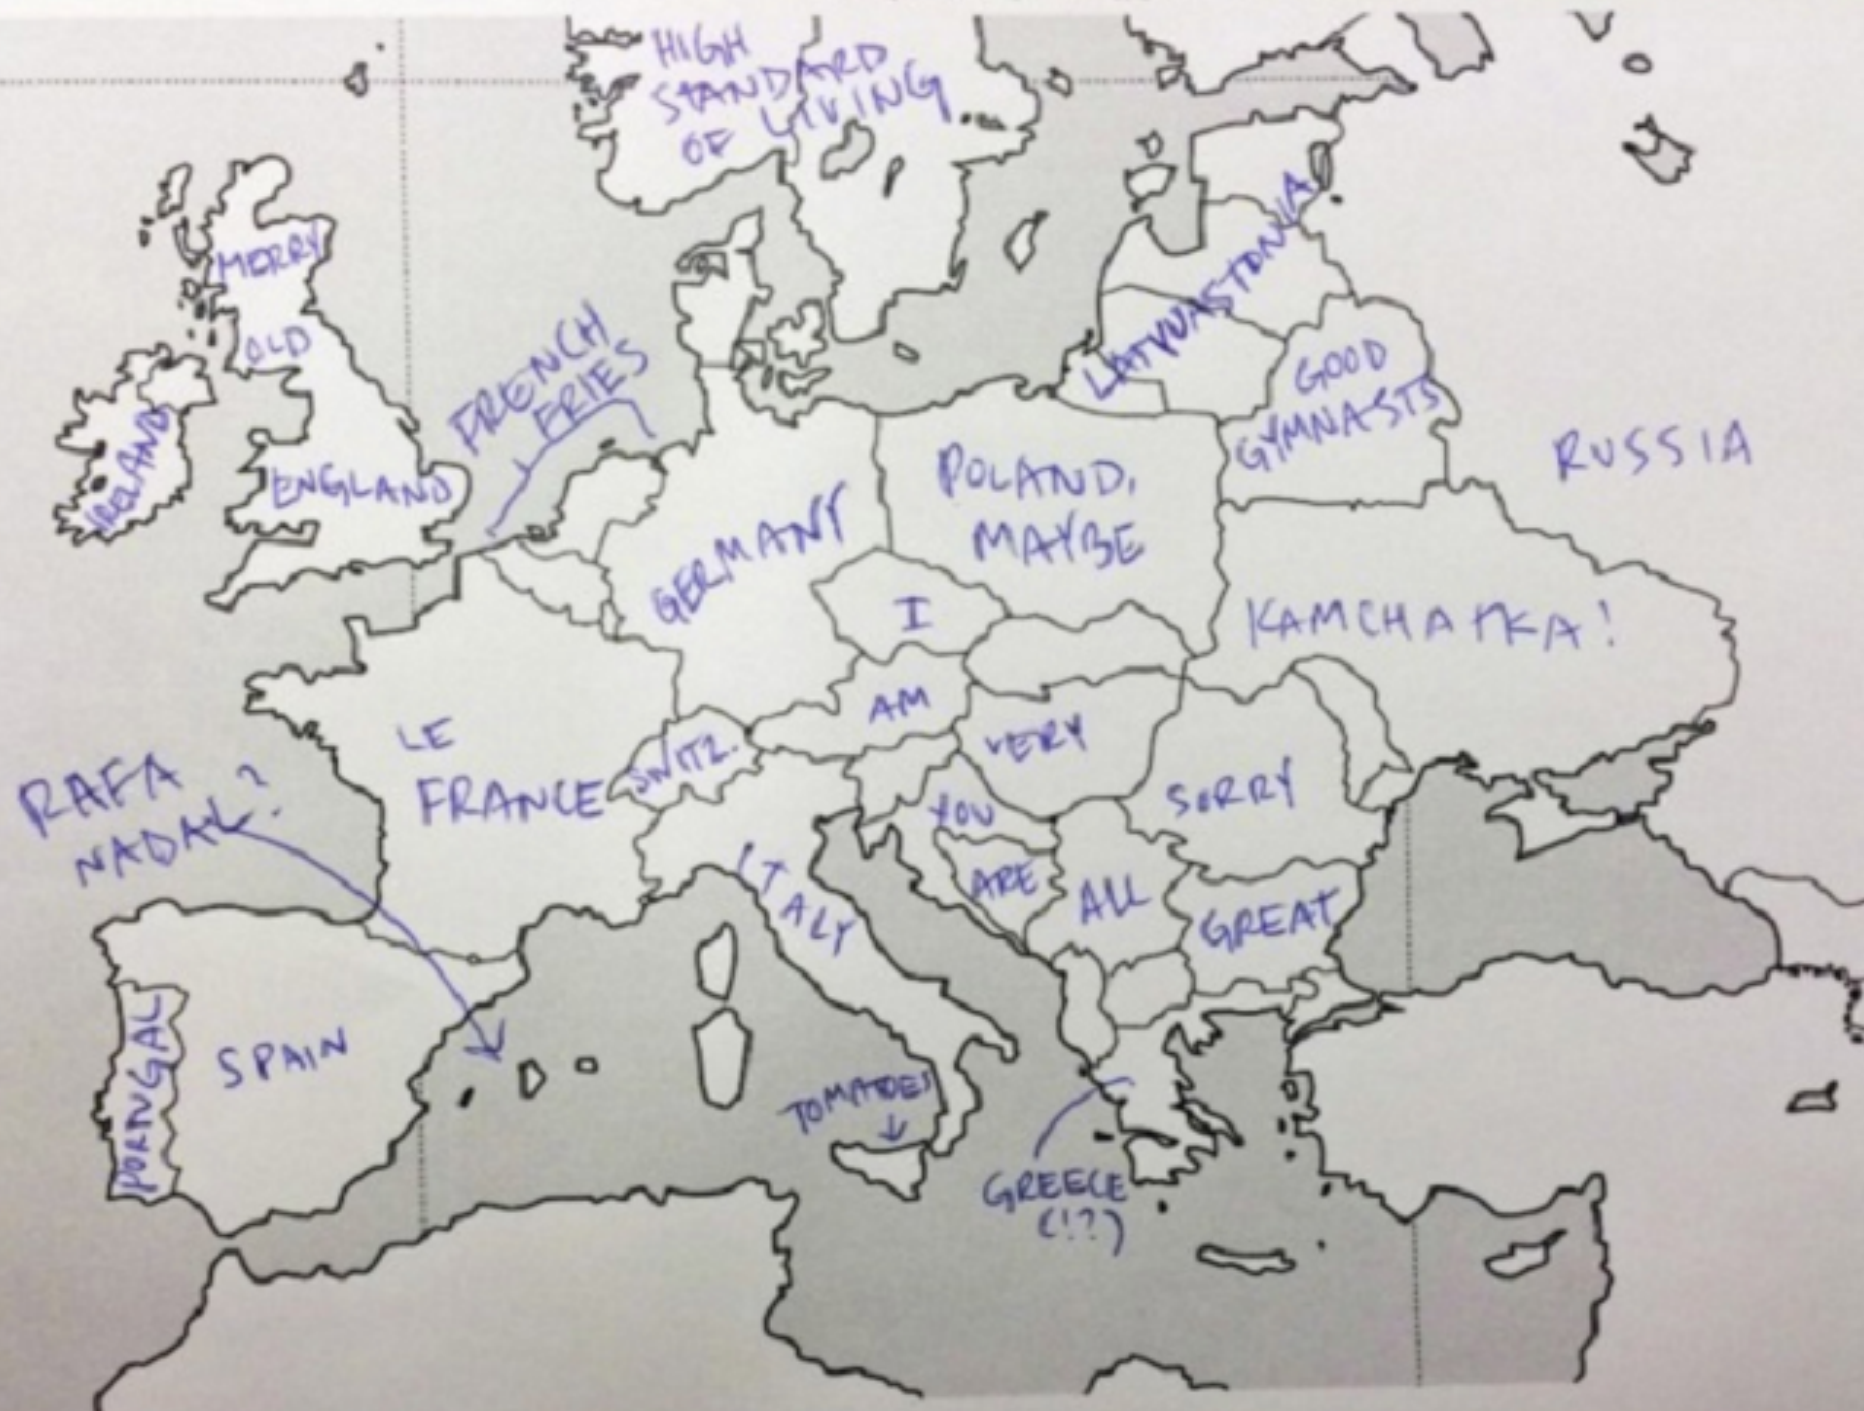 HIGH
STANDARD
OF LIVING
MERRY
OLD
ENGLAND
IRELAND
FRENCH
FRIES
LATVUASTONIA
GOOD
GYMNASTS
RUSSIA
POLAND,
MAYBE
GERMANY
KAMCHATKA!
I
AM
VERY
SORRY
YOU
ARE
ALL
GREAT
LE
FRANCE
SWITZ.
ITALY
RAFA
NADAL?
SPAIN
PORNGAL
TOMATOES
GREECE
(!?)